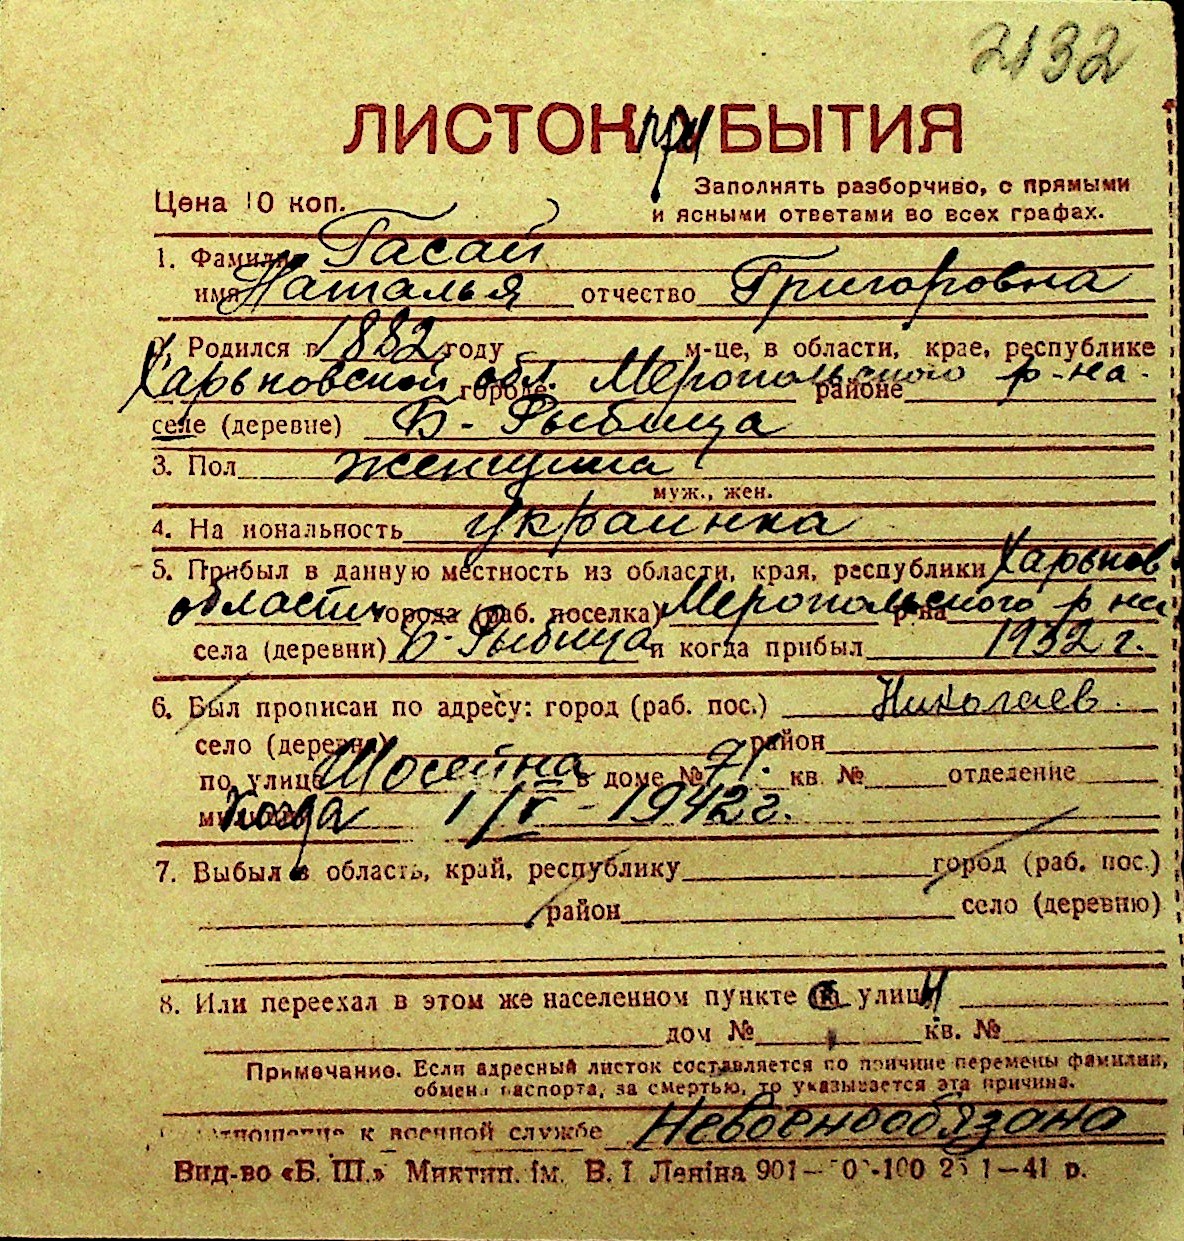 2132
ЛИСТОК при БЫТИЯ
Цена 10 коп.
Заполнять разборчиво, с прямыми
и ясными ответами во всех графах.
1. Фамилия Гасай
имя Наталья отчество Григоровна
2. Родился в 1882 году м-це, в области, крае, республике
Харьковской обл. городе Меропольского районе р-на
селе (деревне) Б-Рыбица
3. Пол женщина
муж., жен.
4. На иональность украинка
5. Прибыл в данную местность из области, края, республики Харьков
области города (раб. поселка) Меропольского р-на р на
села (деревни) Б-Рыбица и когда прибыл 1932 г.
6. Был прописан по адресу: город (раб. пос.) Николаев
село (деревня) район
по улице Шосейна в доме № 71. кв. № отделение
милиции Когда 1/V-1942 г.
7. Выбыл в область, край, республику город (раб. пос.)
район село (деревню)
8. Или переехал в этом же населенном пункте улиц
дом № кв. №
Примечание. Если адресный листок составляется по причине перемены фамилии,
обмена паспорта, за смертью, то указывается эта причина.
отношение к военной службе Невоенообязана
Вид-во «Б. Ш.» Миктип. ім. В. І Леніна 901— 100 1—41 р.